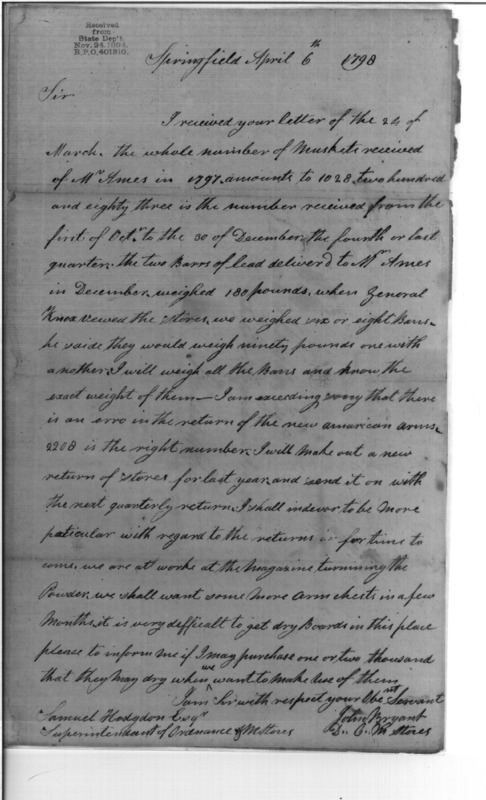 Received
from
State Dep't.
Nov. 24, 1894,
R.P.O. 401310.
Springfield April 6th 1798
Sir
I received your letter of the 24 of
March. the whole number of Muskets received
of Mr Ames in 1797. amounts to 1028. two hundred
and eighty three is the number received from the
first of Octr to the 30 of December. the fourth or last
quarter. the two Barrs of lead deliver'd to Mr Ames
in December. weighed 180 pounds. when General
Knox vewed the stores, we weighed six or eight Barrs.
he saide they would weigh ninety pounds one with
another. I will weigh all the Barrs and know the
exact weight of them — I am exceeding sorry that there
is an erro in the return of the new amarican arms.
2208 is the right number. I will make out a new
return of stores for last year. and send it on with
the next quarterly return. I shall indevor to be more
paticular with regard to the returns in for time to
come. we are at worke at the Magazine turnning the
Powder. we shall want some more Arm chests in a few
Months. it is very defficalt to get dry Boards in this place
please to inform me if I may purchase one or two thousand
that they may dry when we want to make use of them
I am Sir with respect your Obent Servant
Samuel Hodgdon Esqr John Bryant
Superintendant of Ordnance & M Stores D. C. M Stores